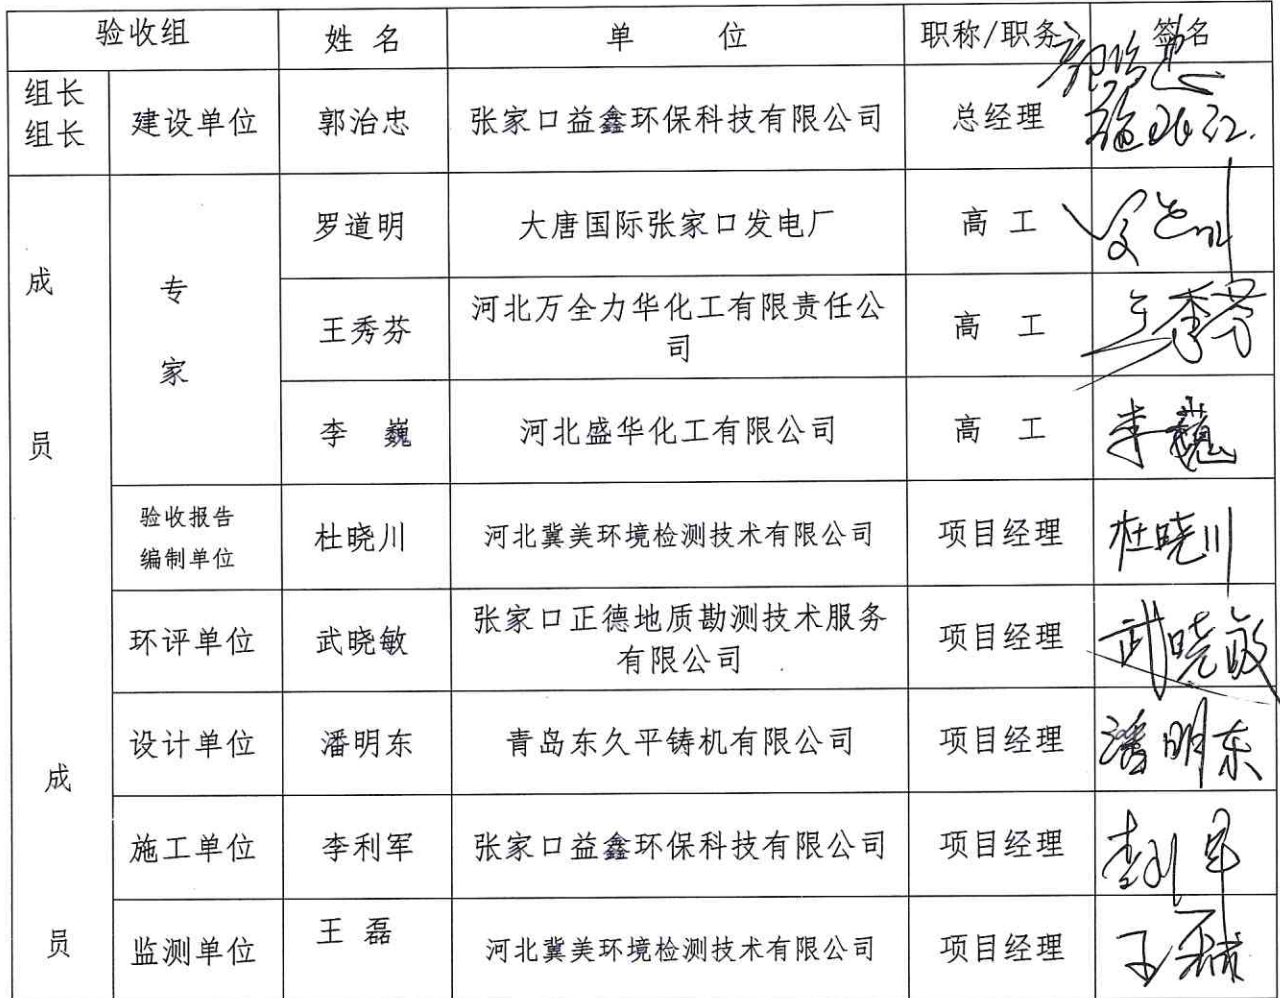 验收组 姓 名 单 位 职称/职务 签名
组长
组长
建设单位 郭治忠 张家口益鑫环保科技有限公司 总经理 郭治忠
成
员
专
家
罗道明 大唐国际张家口发电厂 高 工
王秀芬 河北万全力华化工有限责任公
司
高 工 王秀芬
李 巍 河北盛华化工有限公司 高 工 李巍
验收报告
编制单位
杜晓川 河北冀美环境检测技术有限公司 项目经理 杜晓川
环评单位 武晓敏 张家口正德地质勘测技术服务
有限公司
项目经理 武晓敏
成
员
设计单位 潘明东 青岛东久平铸机有限公司 项目经理 潘明东
施工单位 李利军 张家口益鑫环保科技有限公司 项目经理 李利军
监测单位 王 磊 河北冀美环境检测技术有限公司 项目经理 王磊